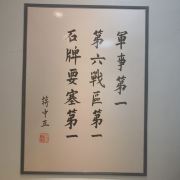 軍事第一
第六戰區第一
石牌要塞第一
蔣中正